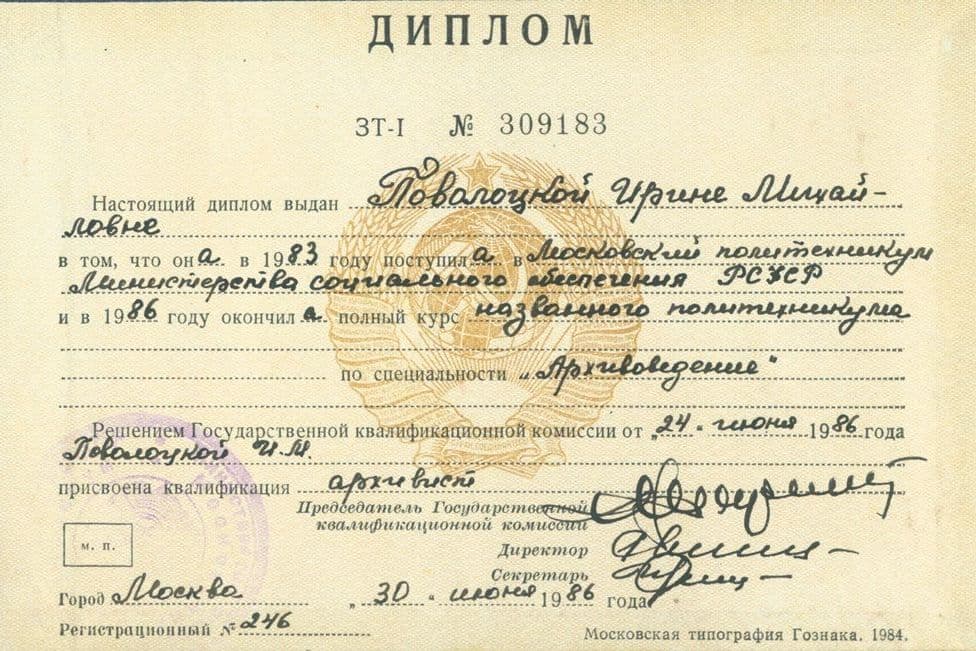 ДИПЛОМ
ЗТ-I № 309183
Настоящий диплом выдан Поволоцкой Ирине Михай-
ловне
в том, что она в 1983 году поступила в Московский политехникум
Министерства социального обеспечения РСФСР
и в 1986 году окончила полный курс названного политехникума
по специальности „Архивоведение"
Решением Государственной квалификационной комиссии от „24" июня 1986 года
Поволоцкой И.М.
присвоена квалификация архивист
Председатель Государственной
квалификационной комиссии
Директор
м. п.
Секретарь
Город Москва „30" июня 1986 года
Регистрационный № 246
Московская типография Гознака. 1984.